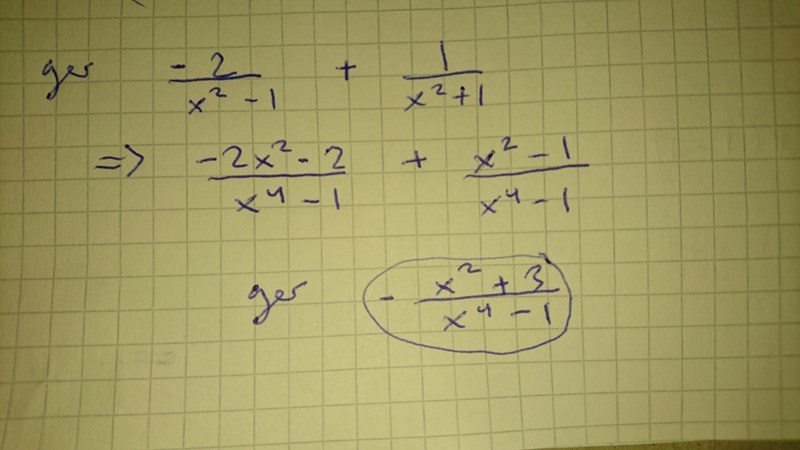 ger -2/(x² - 1) + 1/(x² + 1)
=> (-2x² - 2)/(x⁴ - 1) + (x² - 1)/(x⁴ - 1)
ger - (x² + 3)/(x⁴ - 1)